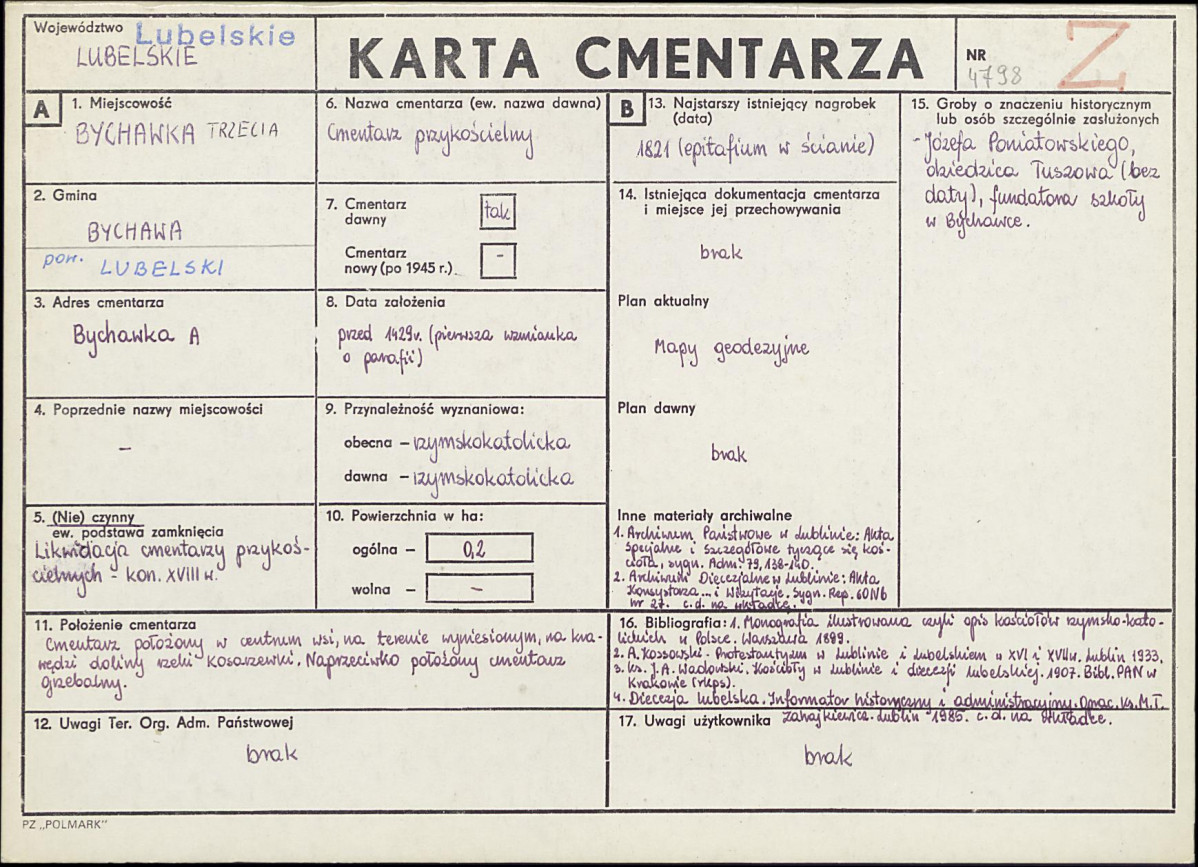 Województwo Lubelskie
LUBELSKIE
KARTA CMENTARZA
NR
4798
Z
A
1. Miejscowość
BYCHAWKA TRZECIA
2. Gmina
BYCHAWA
pow. LUBELSKI
3. Adres cmentarza
Bychawka A
4. Poprzednie nazwy miejscowości
–
5. (Nie) czynny
ew. podstawa zamknięcia
Likwidacja cmentarzy przykoś-
cielnych - kon. XVIII w.
6. Nazwa cmentarza (ew. nazwa dawna)
Cmentarz przykościelny
7. Cmentarz
dawny
tak
Cmentarz
nowy (po 1945 r.)
-
8. Data założenia
przed 1429r. (pierwsza wzmianka
o parafii)
9. Przynależność wyznaniowa:
obecna – rzymskokatolicka
dawna – rzymskokatolicka
10. Powierzchnia w ha:
ogólna – 0,2
wolna – –
11. Położenie cmentarza
Cmentarz położony w centrum wsi, na terenie wyniesionym, na kra-
wędzi doliny rzeki Kosarzewki. Naprzeciwko położony cmentarz
grzebalny.
12. Uwagi Ter. Org. Adm. Państwowej
brak
B
13. Najstarszy istniejący nagrobek
(data)
1821 (epitafium w ścianie)
14. Istniejąca dokumentacja cmentarza
i miejsce jej przechowywania
brak
Plan aktualny
Mapy geodezyjne
Plan dawny
brak
Inne materiały archiwalne
1. Archiwum Państwowe w Lublinie: Akta
specjalne i szczegółowe tyczące się koś-
cioła, sygn. Adm. 79, 138-140.
2. Archiwum Diecezjalne w Lublinie: Akta
Konsystorza... i Wizytacje. Sygn. Rep. 60 IVb
nr 27. c.d. na wkładce.
15. Groby o znaczeniu historycznym
lub osób szczególnie zasłużonych
- Józefa Poniatowskiego,
dziedzica Tuszowa (bez
daty), fundatora szkoły
w Bychawce.
16. Bibliografia: 1. Monografia ilustrowana czyli opis kościołów rzymsko-kato-
lickich w Polsce. Warszawa 1899.
2. A. Kossowski - Protestantyzm w Lublinie i Lubelskiem w XVI i XVII w. Lublin 1933.
3. Ks. J. A. Wadowski. Kościoły w Lublinie i diecezji lubelskiej. 1907. Bibl. PAN w
Krakowie (rkps).
4. Diecezja lubelska. Informator historyczny i administracyjny. Oprac. Ks. M. T.
Zahajkiewicz. Lublin 1985. c.d. na wkładce.
17. Uwagi użytkownika
brak
PZ „POLMARK”